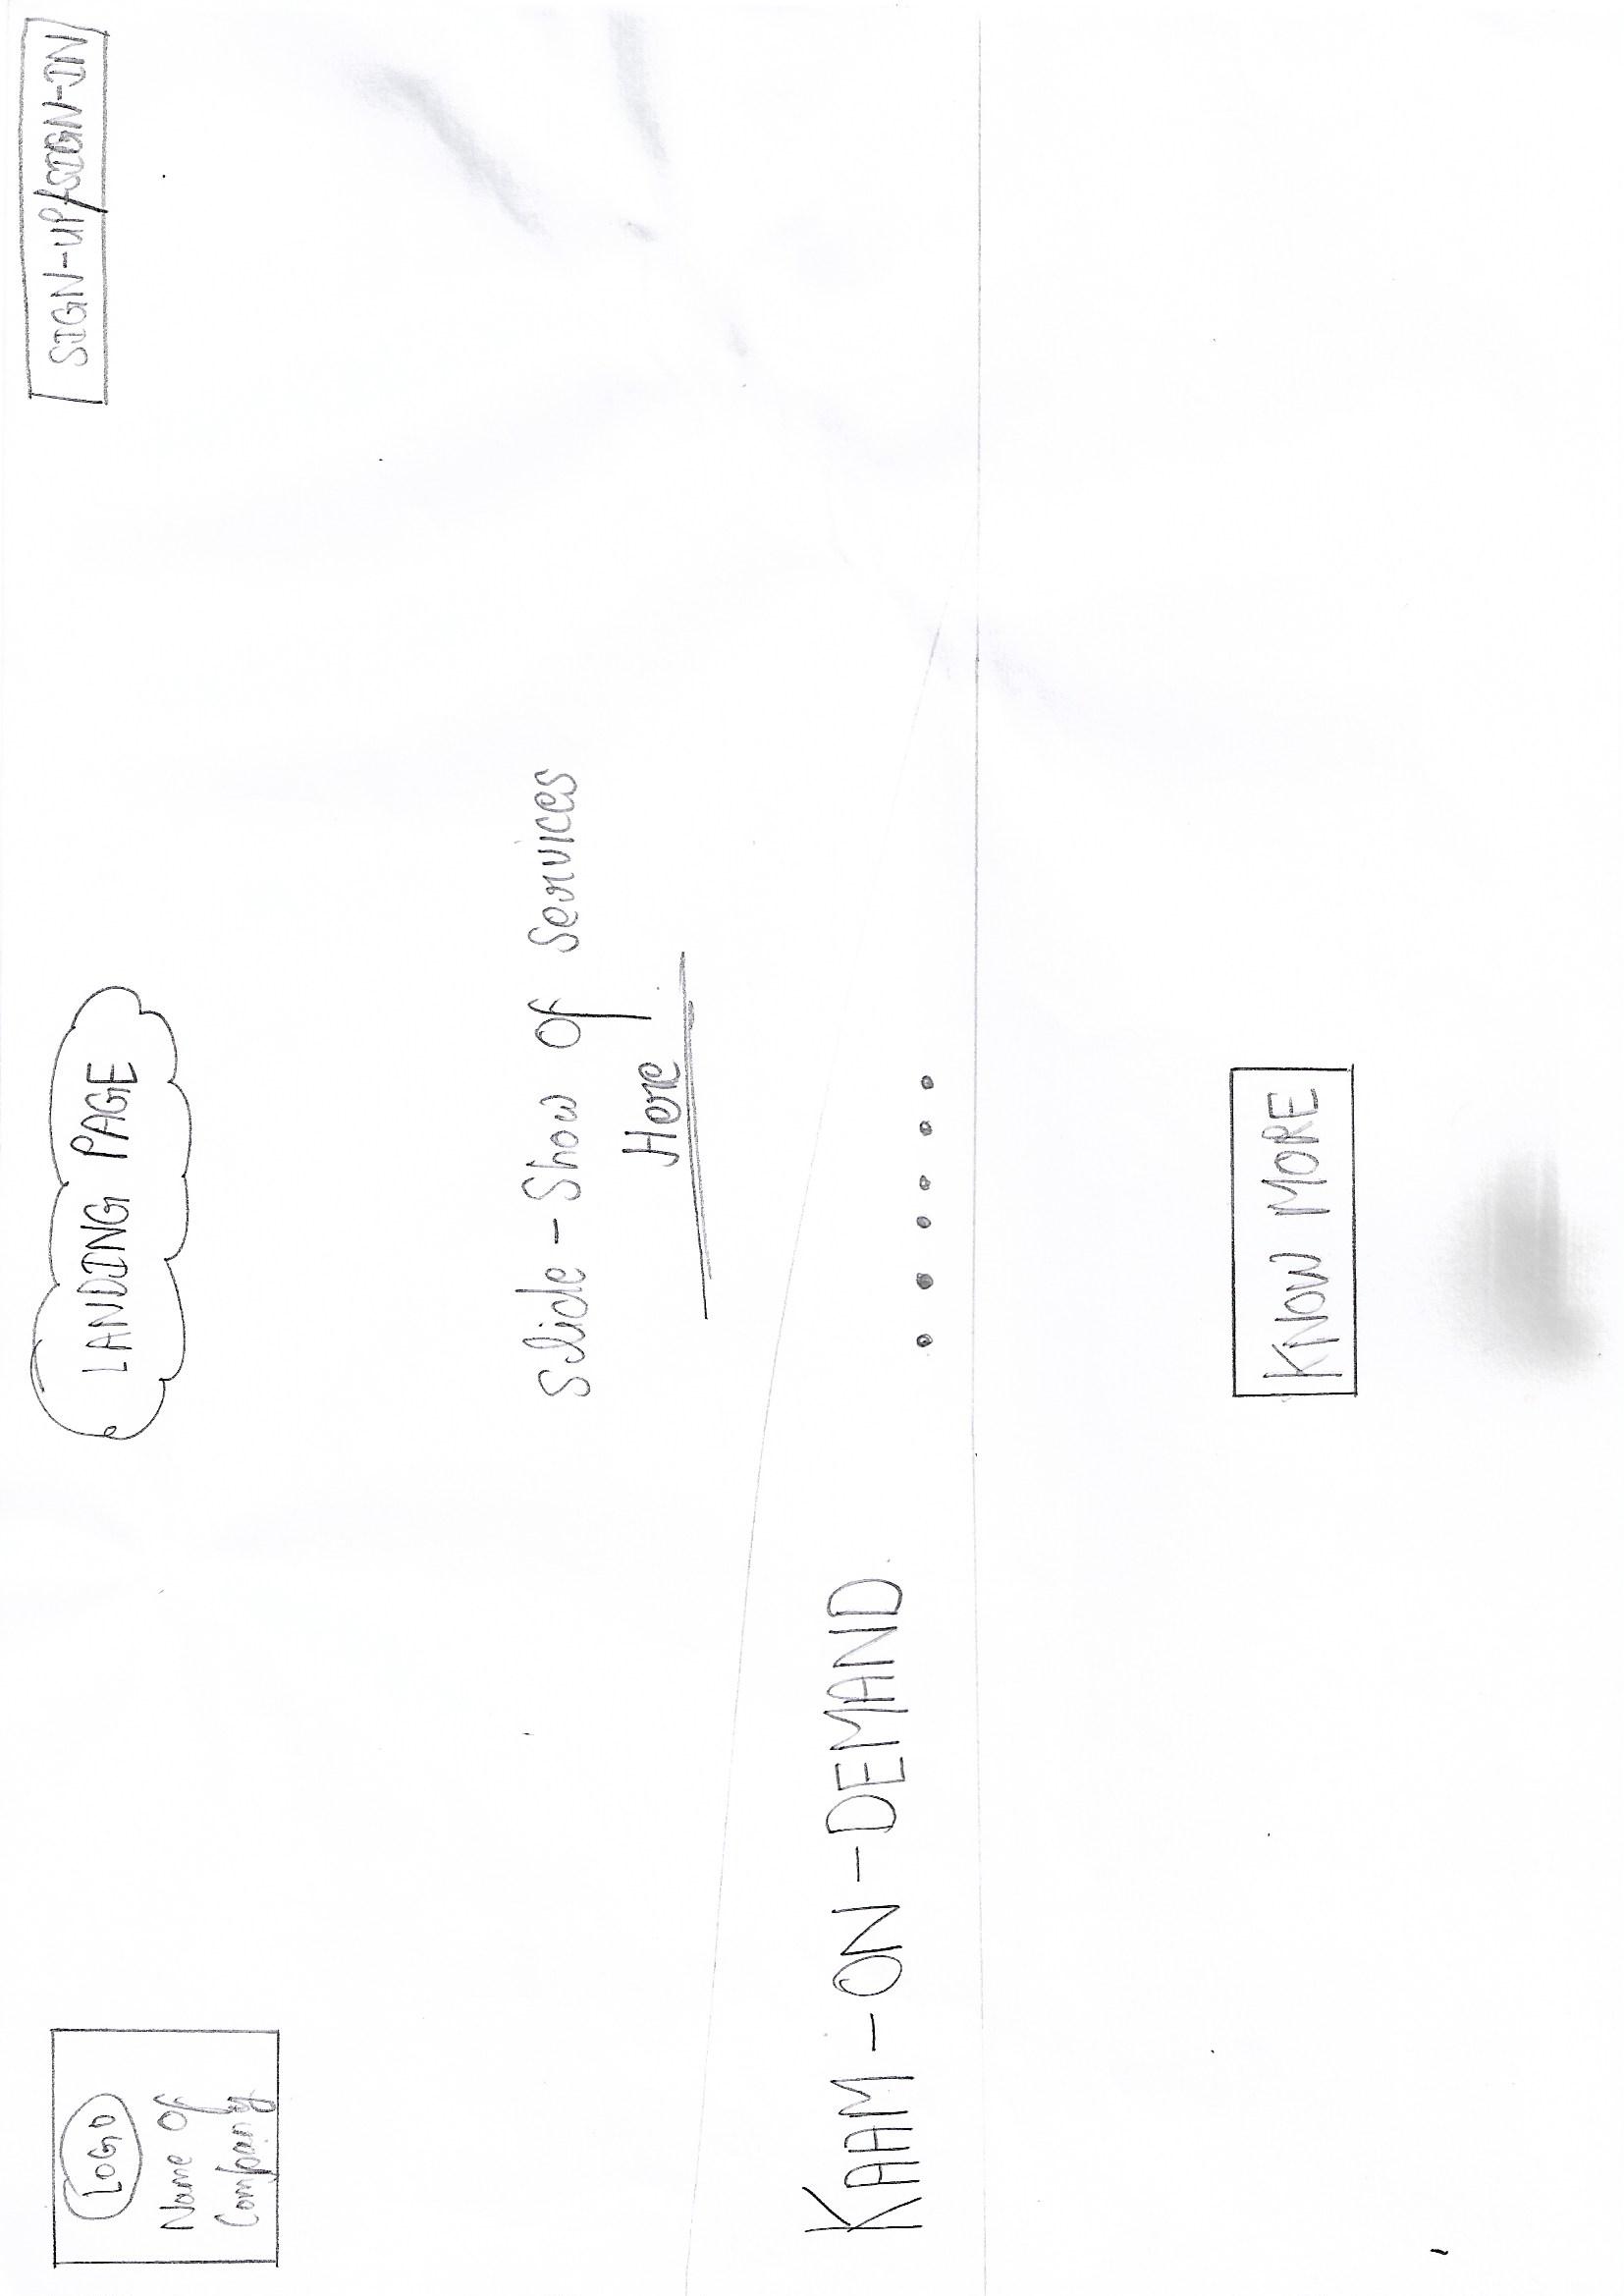 LOGO
Name Of
Company
LANDING PAGE
SIGN-UP/SIGN-IN
Slide-Show Of Services
Here
KAAM-ON-DEMAND
KNOW MORE